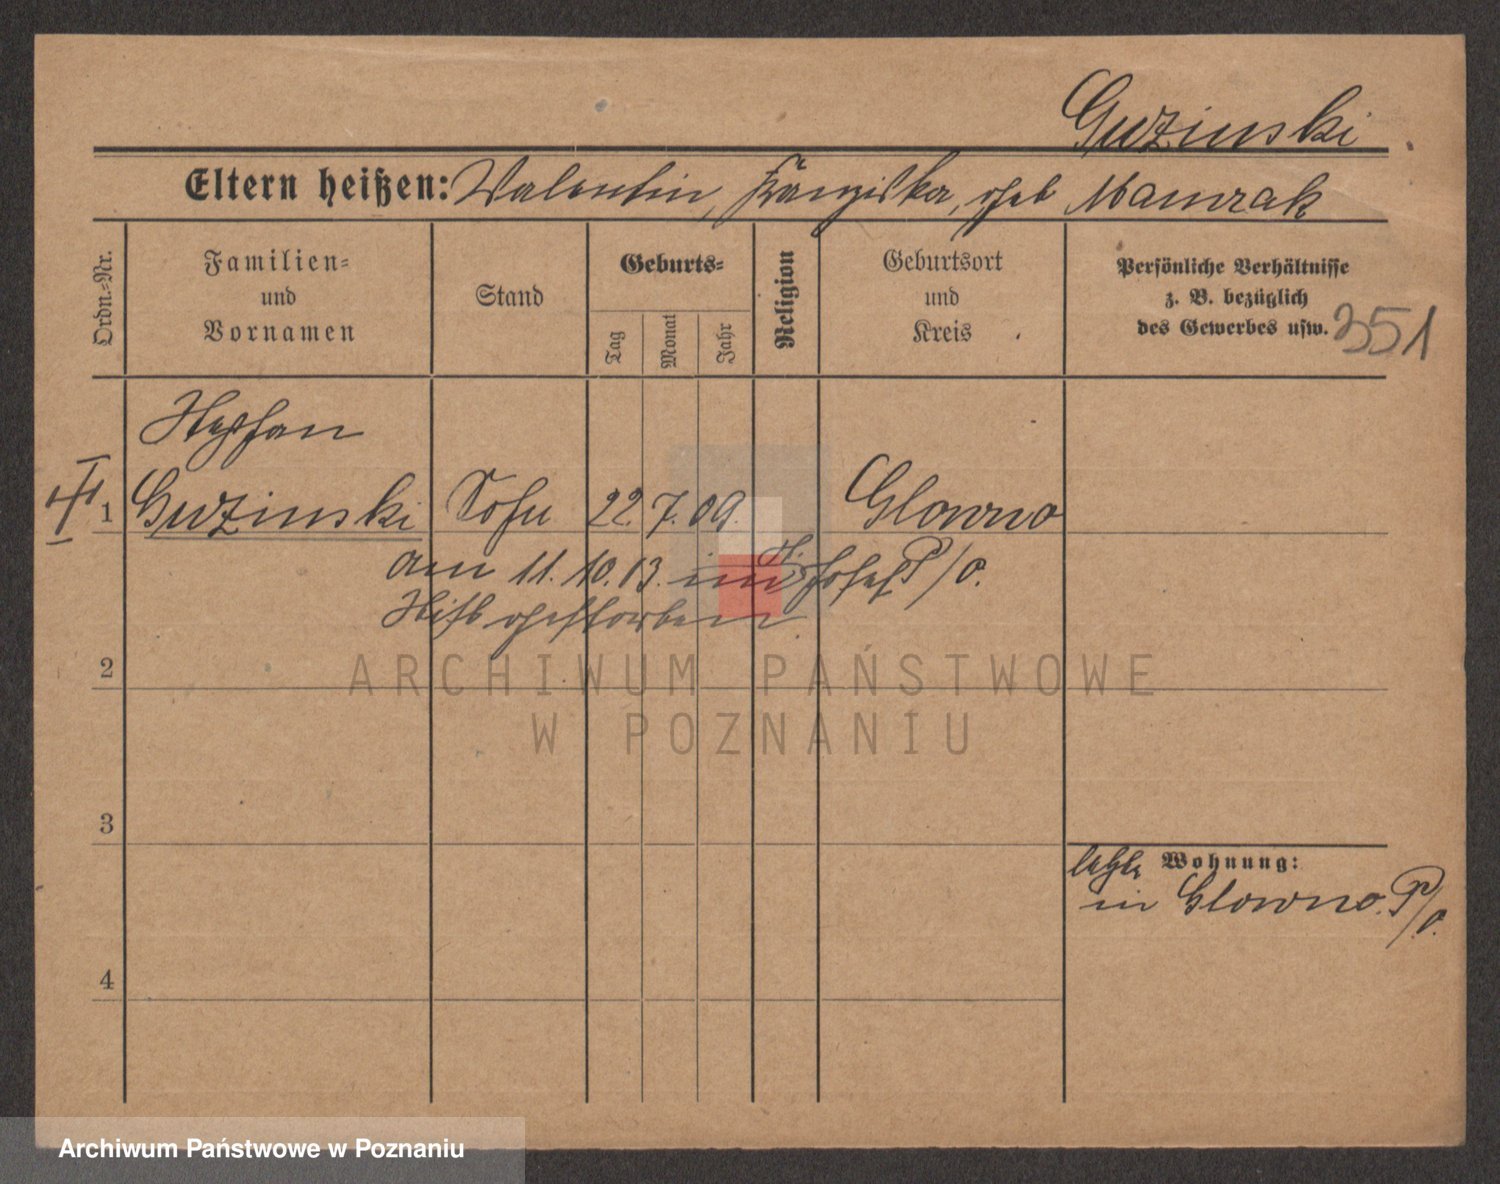 Guzinski
Eltern heißen: Valentin, Franziska, geb Mamzak
Ordn.-Nr.
Familien-
und
Vornamen
Stand
Geburts-
Tag
Monat
Jahr
Religion
Geburtsort
und
Kreis
Persönliche Verhältnisse
z. B. bezüglich
des Gewerbes usw.
351
Stephan
1 Guzinski Sohn 22. 7. 09. Glowno
am 11. 10. 13. im St. Josef P/O.
Stift gestorben
2
3
letzte Wohnung:
in Glowno. P/O.
4
ARCHIWUM PAŃSTWOWE
W POZNANIU
Archiwum Państwowe w Poznaniu